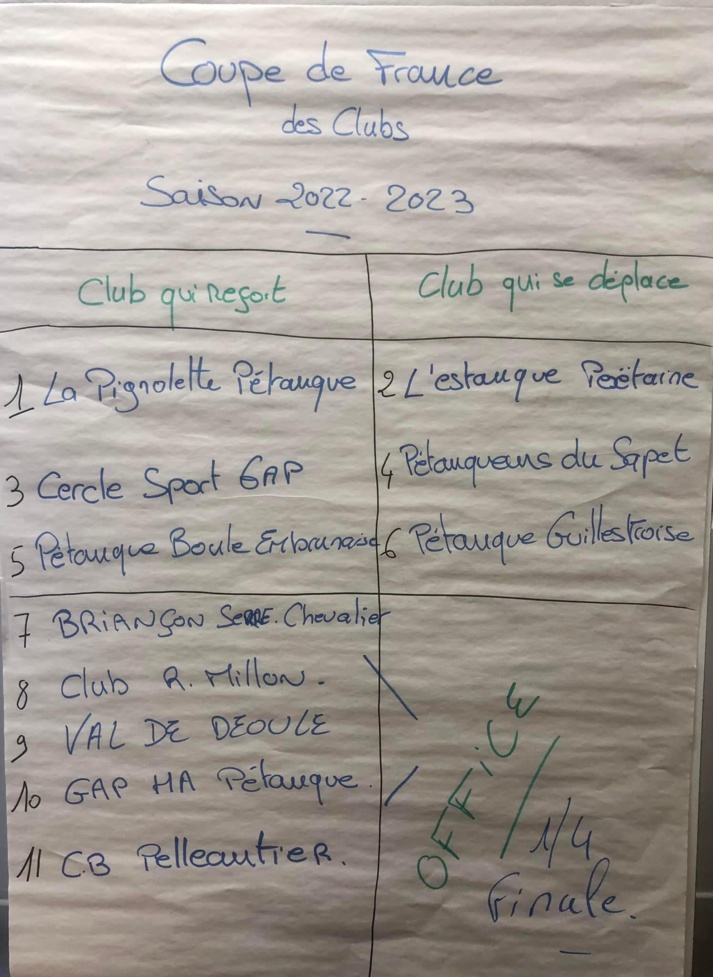 Coupe de France
des Clubs
Saison 2022-2023
Club qui Reçoit
Club qui se déplace
1 La Pignolette Pétanque
2 L'estanque Peïtaine
3 Cercle Sport GAP
4 Pétanqueurs du Sapet
5 Pétanque Boule Embrunaise
6 Pétanque Guillestroise
7 BRIANÇON SERRE. Chevalier
8 Club R. Millon.
9 VAL DE DEOULE
10 GAP HA Pétanque.
11 C.B Pelleautier.
OFFICE
1/4
Finale.